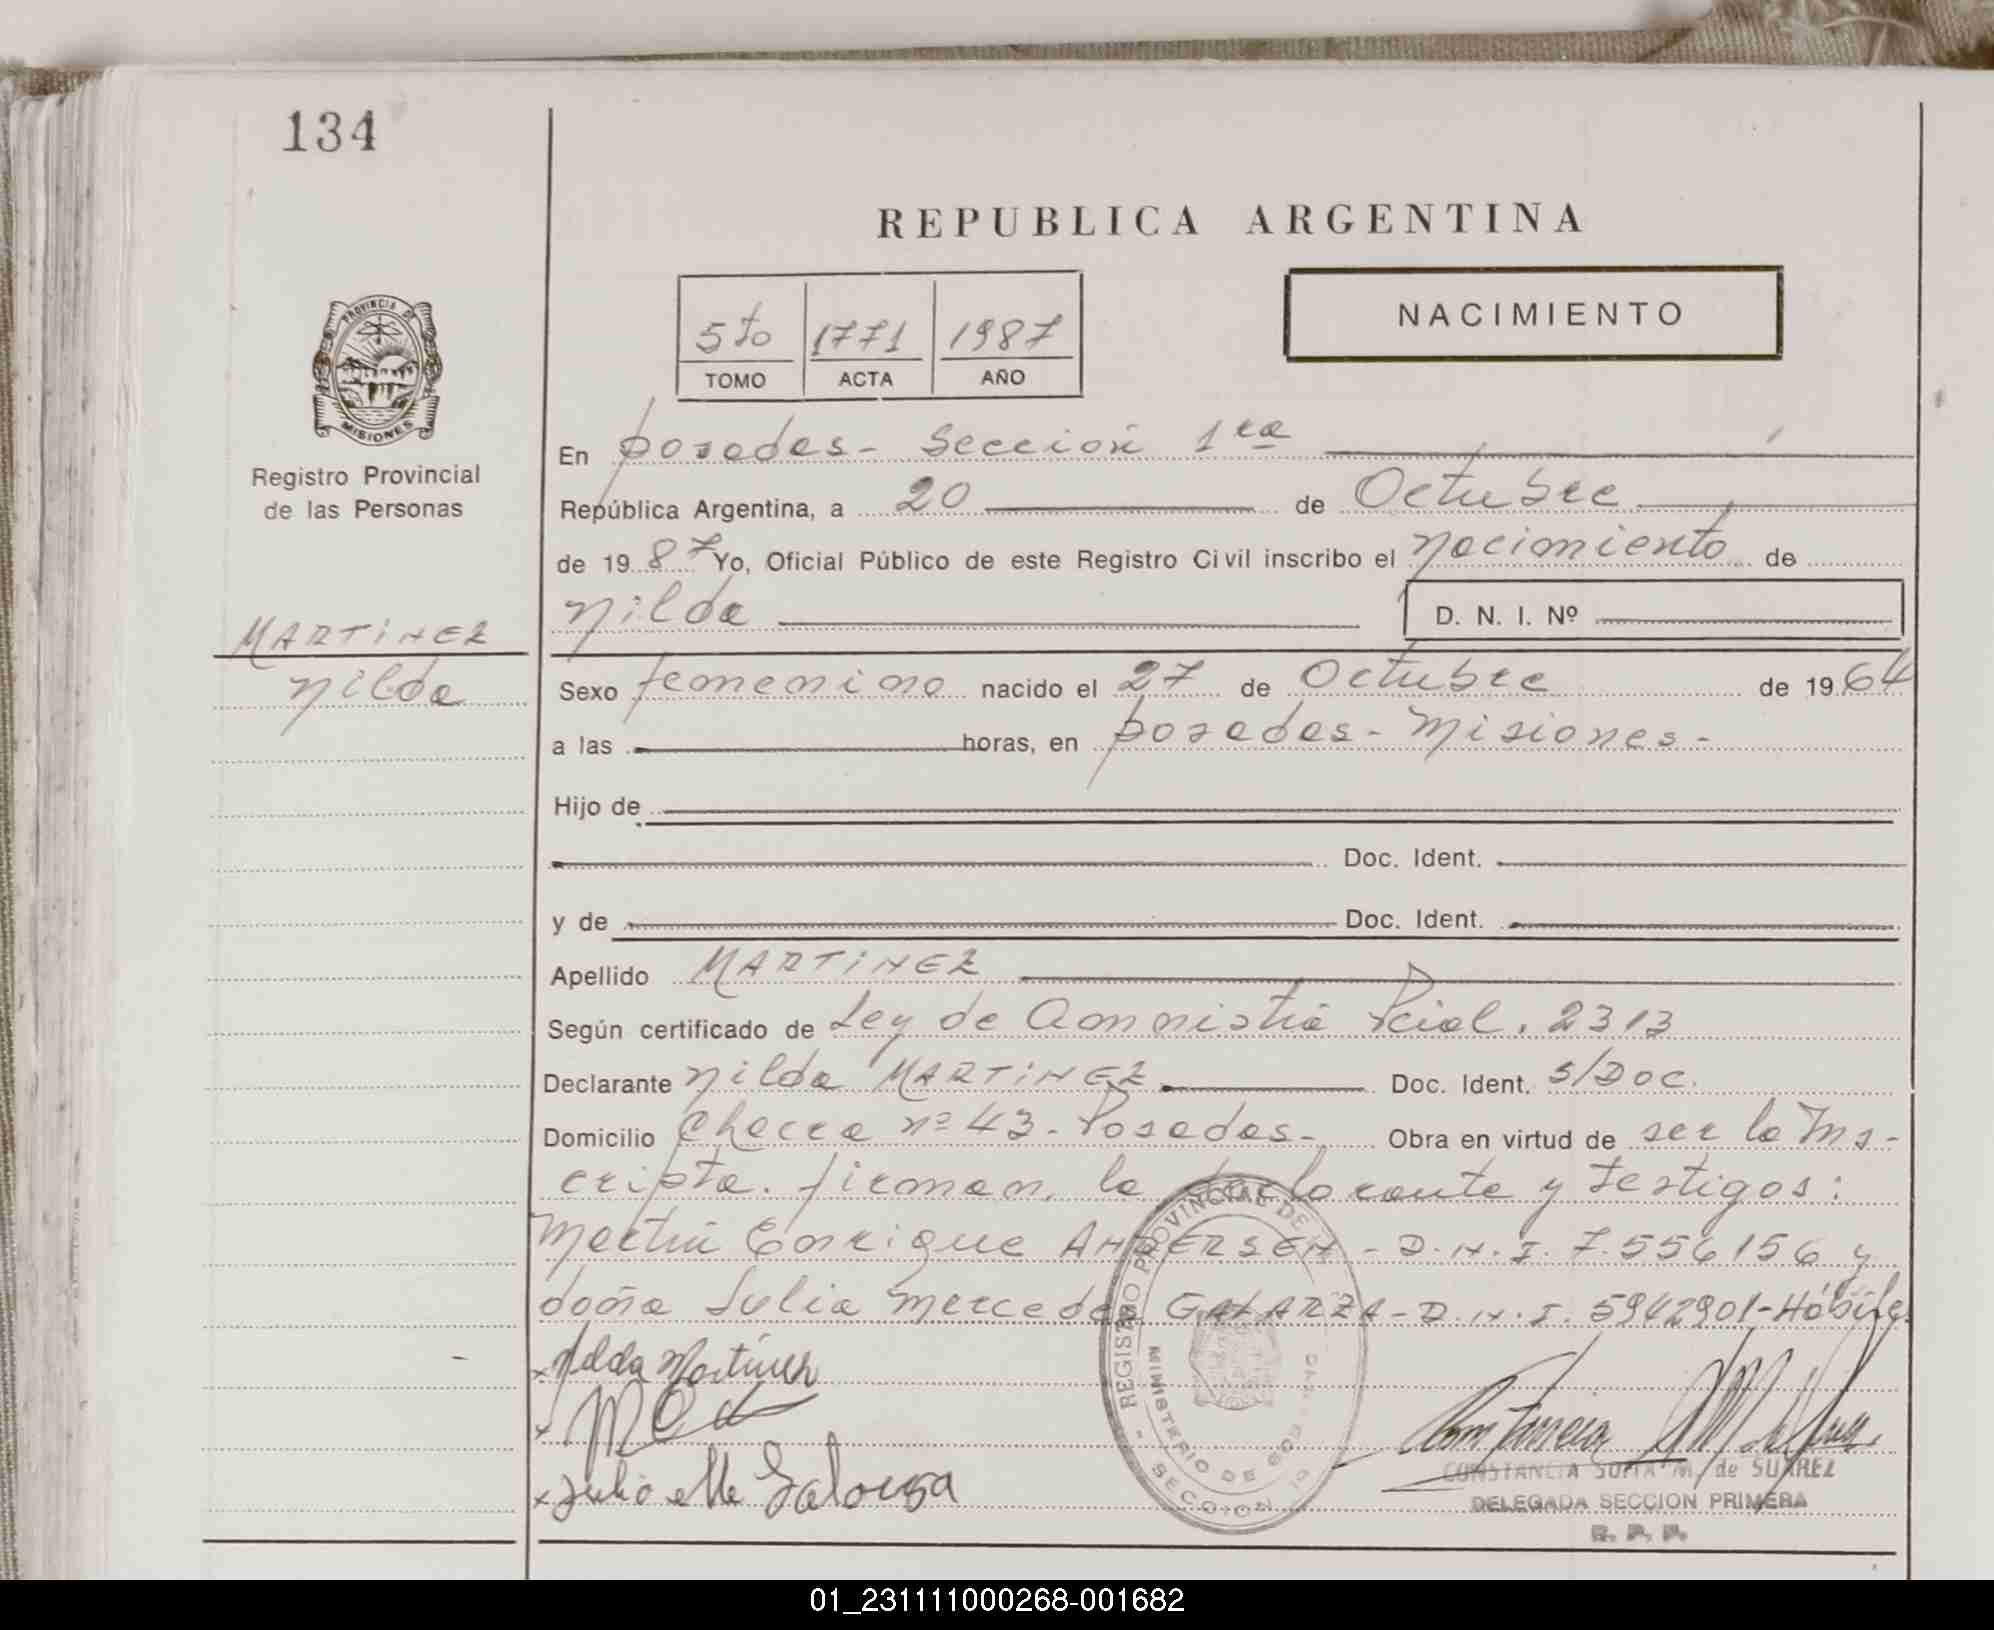 134
REPUBLICA ARGENTINA
5to 1771 1987
TOMO ACTA AÑO
NACIMIENTO
PROVINCIA DE
MISIONES
Registro Provincial
de las Personas
MARTINEZ
Nilda
En Posadas - Sección 1ra
República Argentina, a 20 de Octubre
de 1987 Yo, Oficial Público de este Registro Civil inscribo el nacimiento de
Nilda D. N. I. Nº
Sexo femenino nacido el 27 de Octubre de 1964
a las horas, en Posadas - Misiones -
Hijo de
Doc. Ident.
y de Doc. Ident.
Apellido MARTINEZ
Según certificado de Ley de Amnistía Pcial. 2313
Declarante Nilda MARTINEZ Doc. Ident. S/DOC.
Domicilio Chacra nº 43 - Posadas - Obra en virtud de ser la Ins-
cripta. firman, la declarante y testigos:
Martín Enrique ANDERSEN - D.N.I. 7.556156 y
doña Julia Mercedes GALARZA - D.N.I. 5942901 - Hábiles.
x Nilda Martinez
x
x Julia M Galarza
REGISTRO PROVINCIAL DE
MINISTERIO DE GOBIERNO
SECCION
CONSTANCIA SOFIA M. de SUAREZ
DELEGADA SECCION PRIMERA
R. P. P.
01_231111000268-001682